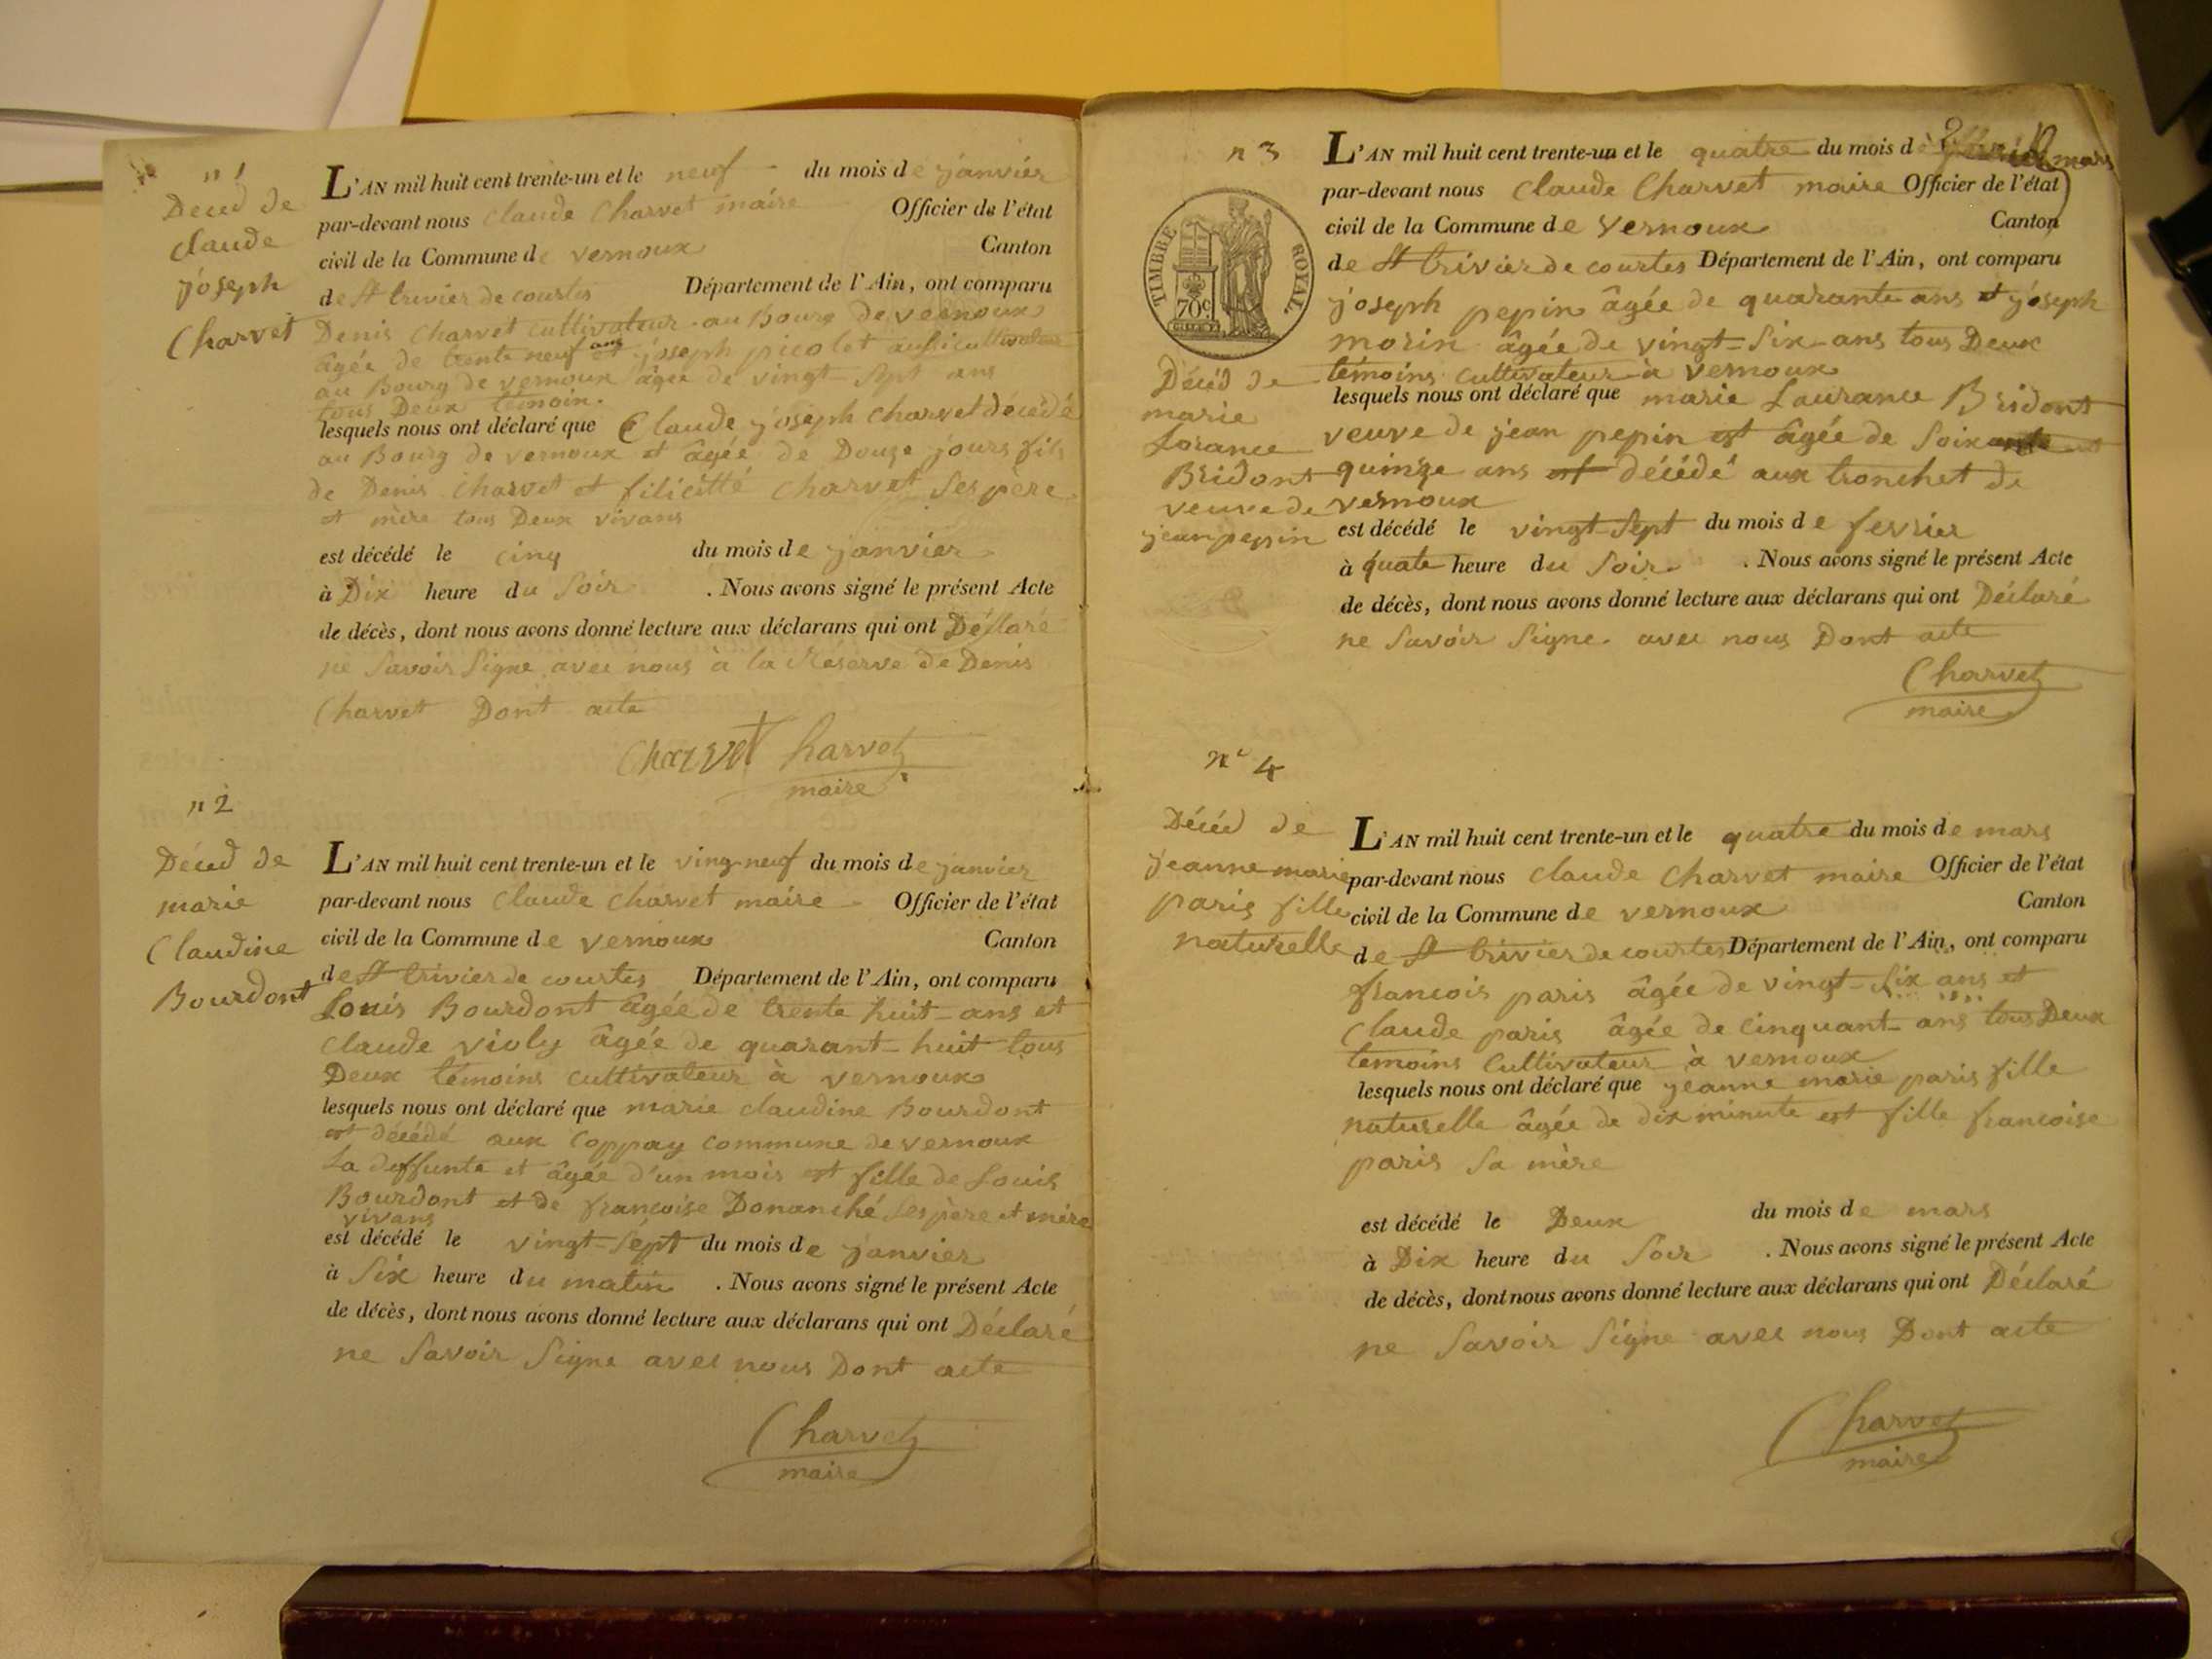 n 1
Déced de
claude
joseph
Charvet
L'AN mil huit cent trente-un et le neuf du mois de janvier
par-devant nous claude Charvet maire Officier de l'état
civil de la Commune de vernoux Canton
de St trivier de courtes Département de l'Ain, ont comparu
Denis Charvet cultivateur au Bourg de vernoux
âgée de trente neuf ans et joseph picolet cultivateur
au Bourg de vernoux âgée de vingt-sept ans
tous Deux témoin.
lesquels nous ont déclaré que Claude joseph charvet décédé
au Bourg de vernoux et âgée de Douze jours fils
de Denis Charvet et filicitté Charvet ses père
et mère tous Deux vivans
est décédé le cinq du mois de janvier
à Dix heure du soir . Nous avons signé le présent Acte
de décès, dont nous avons donné lecture aux déclarans qui ont Déclaré
ne savoir signe avec nous à la Réserve de Denis
Charvet Dont acte
Charvet Charvet
maire
n 2
Décéd de
marie
Claudine
Bourdont
L'AN mil huit cent trente-un et le ving-neuf du mois de janvier
par-devant nous Claude Charvet maire Officier de l'état
civil de la Commune de vernoux Canton
de St trivier de courtes Département de l'Ain, ont comparu
Louis Bourdont âgée de trente huit-ans et
claude violy âgée de quarant-huit tous
Deux témoins cultivateur à vernoux
lesquels nous ont déclaré que marie claudine Bourdont
est décédé aux Coppay commune de vernoux
La deffunte et âgée d'un mois est fille de Louis
Bourdont et de francoise Donanché ses père et mère
vivans
est décédé le vingt-sept du mois de janvier
à Six heure du matin . Nous avons signé le présent Acte
de décès, dont nous avons donné lecture aux déclarans qui ont Déclaré
ne savoir signe avec nous Dont acte
Charvet
maire
2
n 3
TIMBRE ROYAL
70c
Décéd de
marie
Lorance
Bridont
veuve de
jean pepin
L'AN mil huit cent trente-un et le quatre du mois de mars
par-devant nous Claude Charvet maire Officier de l'état
civil de la Commune de vernoux Canton
de St trivier de courtes Département de l'Ain, ont comparu
joseph pepin âgée de quarante ans et joseph
morin âgée de vingt-six-ans tous Deux
témoins cultivateur à vernoux
lesquels nous ont déclaré que marie Laurance Bridont
veuve de jean pepin est âgée de soixante
quinze ans est décédé aux tronchet de
vernoux
est décédé le vingt-sept du mois de fevrier
à quate heure du soir . Nous avons signé le présent Acte
de décès, dont nous avons donné lecture aux déclarans qui ont Déclaré
ne savoir signe avec nous Dont acte
Charvet
maire
n° 4
Décéd de
jeanne marie
paris fille
naturelle
L'AN mil huit cent trente-un et le quatre du mois de mars
par-devant nous Claude Charvet maire Officier de l'état
civil de la Commune de vernoux Canton
de St trivier de courtes Département de l'Ain, ont comparu
francois paris âgée de vingt-six ans et
Claude paris âgée de cinquant-ans tous Deux
temoins Cultivateur à vernoux
lesquels nous ont déclaré que jeanne marie paris fille
naturelle âgée de dix minute est fille francoise
paris sa mère
est décédé le Deux du mois de mars
à Dix heure du soir . Nous avons signé le présent Acte
de décès, dont nous avons donné lecture aux déclarans qui ont Déclaré
ne savoir signe avec nous Dont acte
Charvet
maire